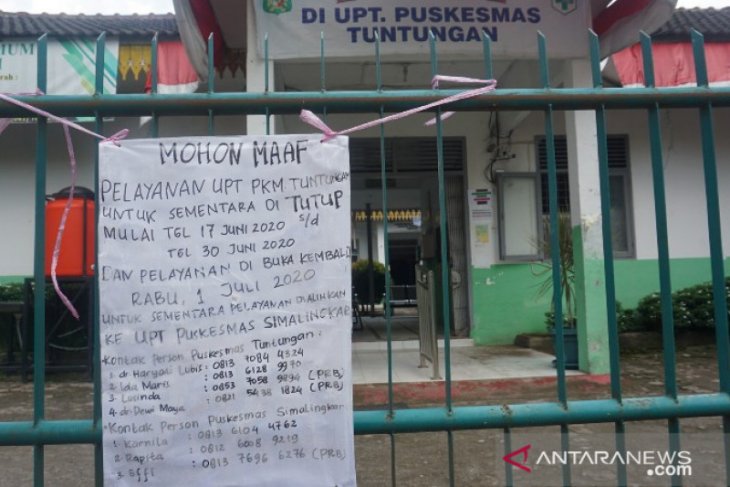 DI UPT. PUSKESMAS
TUNTUNGAN
MOHON MAAF
PELAYANAN UPT PKM TUNTUNGAN
UNTUK SEMENTARA DI TUTUP
MULAI TGL 17 JUNI 2020 s/d
TGL 30 JUNI 2020
DAN PELAYANAN DI BUKA KEMBALI
RABU, 1 JULI 2020
UNTUK SEMENTARA PELAYANAN DIALIHKAN
KE UPT PUSKESMAS SIMALINGKAR
• Kontak Person Puskesmas Tuntungan :
1. dr Haryati Lubis : 0813 7084 4324
2. Ida Maris : 0813 6128 9970
3. Lucinda : 0853 7058 9894 (PRB)
4. dr. Dewi Maya : 0821 5438 1824 (PRB)
• Kontak Person Puskesmas Simalingkar
1. Karnila : 0813 6104 4762
2. Rapita : 0812 6008 9219
3. Effi : 0813 7696 6276 (PRB)
ANTARANEWS
.com